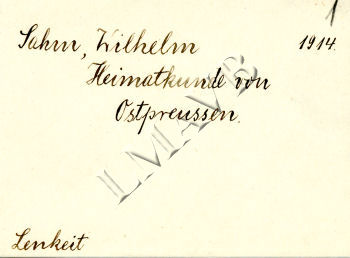 1
Sahm, Wilhelm 1914.
Heimatkunde von
Ostpreussen.
LMAVB
Lenkeit